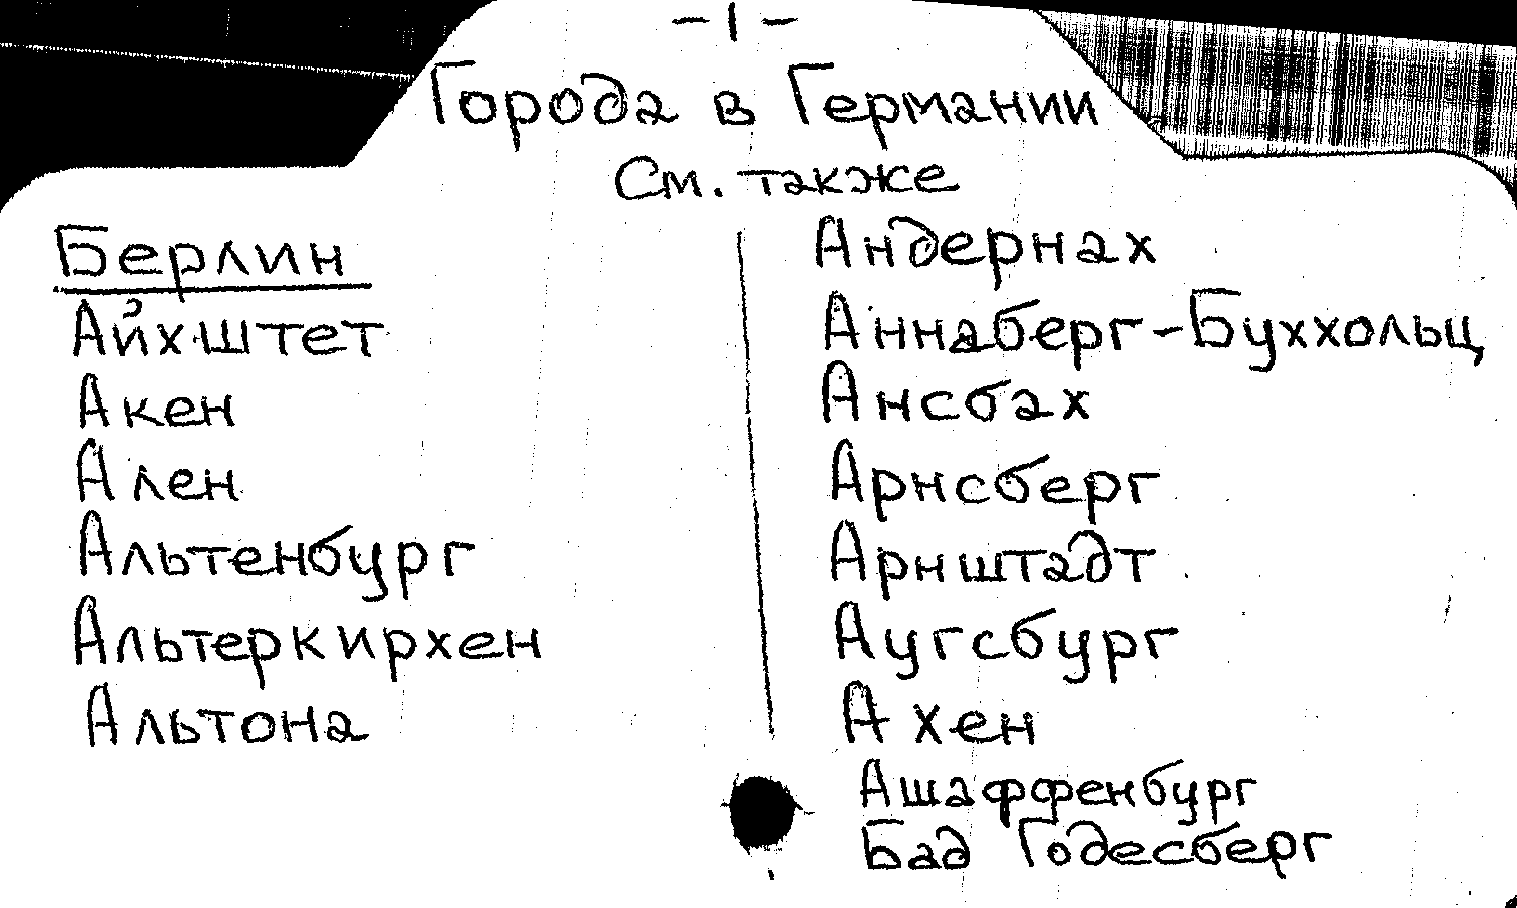 -1-
Города в Германии
См. также
Берлин
Айхштет
Акен
Ален
Альтенбург
Альтеркирхен
Альтона
Андернах
Аннаберг-Буххольц
Ансбах
Арнсберг
Арнштадт
Аугсбург
Ахен
Ашаффенбург
Бад Годесберг